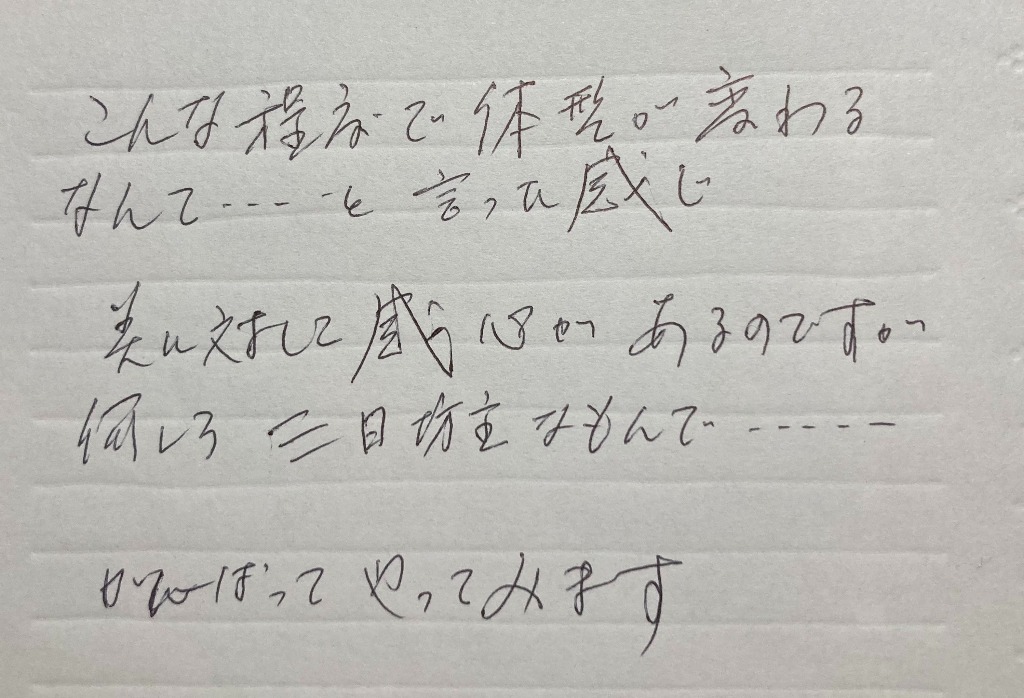 こんな程度で体形が変わる
なんて・・・・と言った感じ
美に対して感心があるのですが
何しろ三日坊主なもんで・・・・・
がんばってやってみます